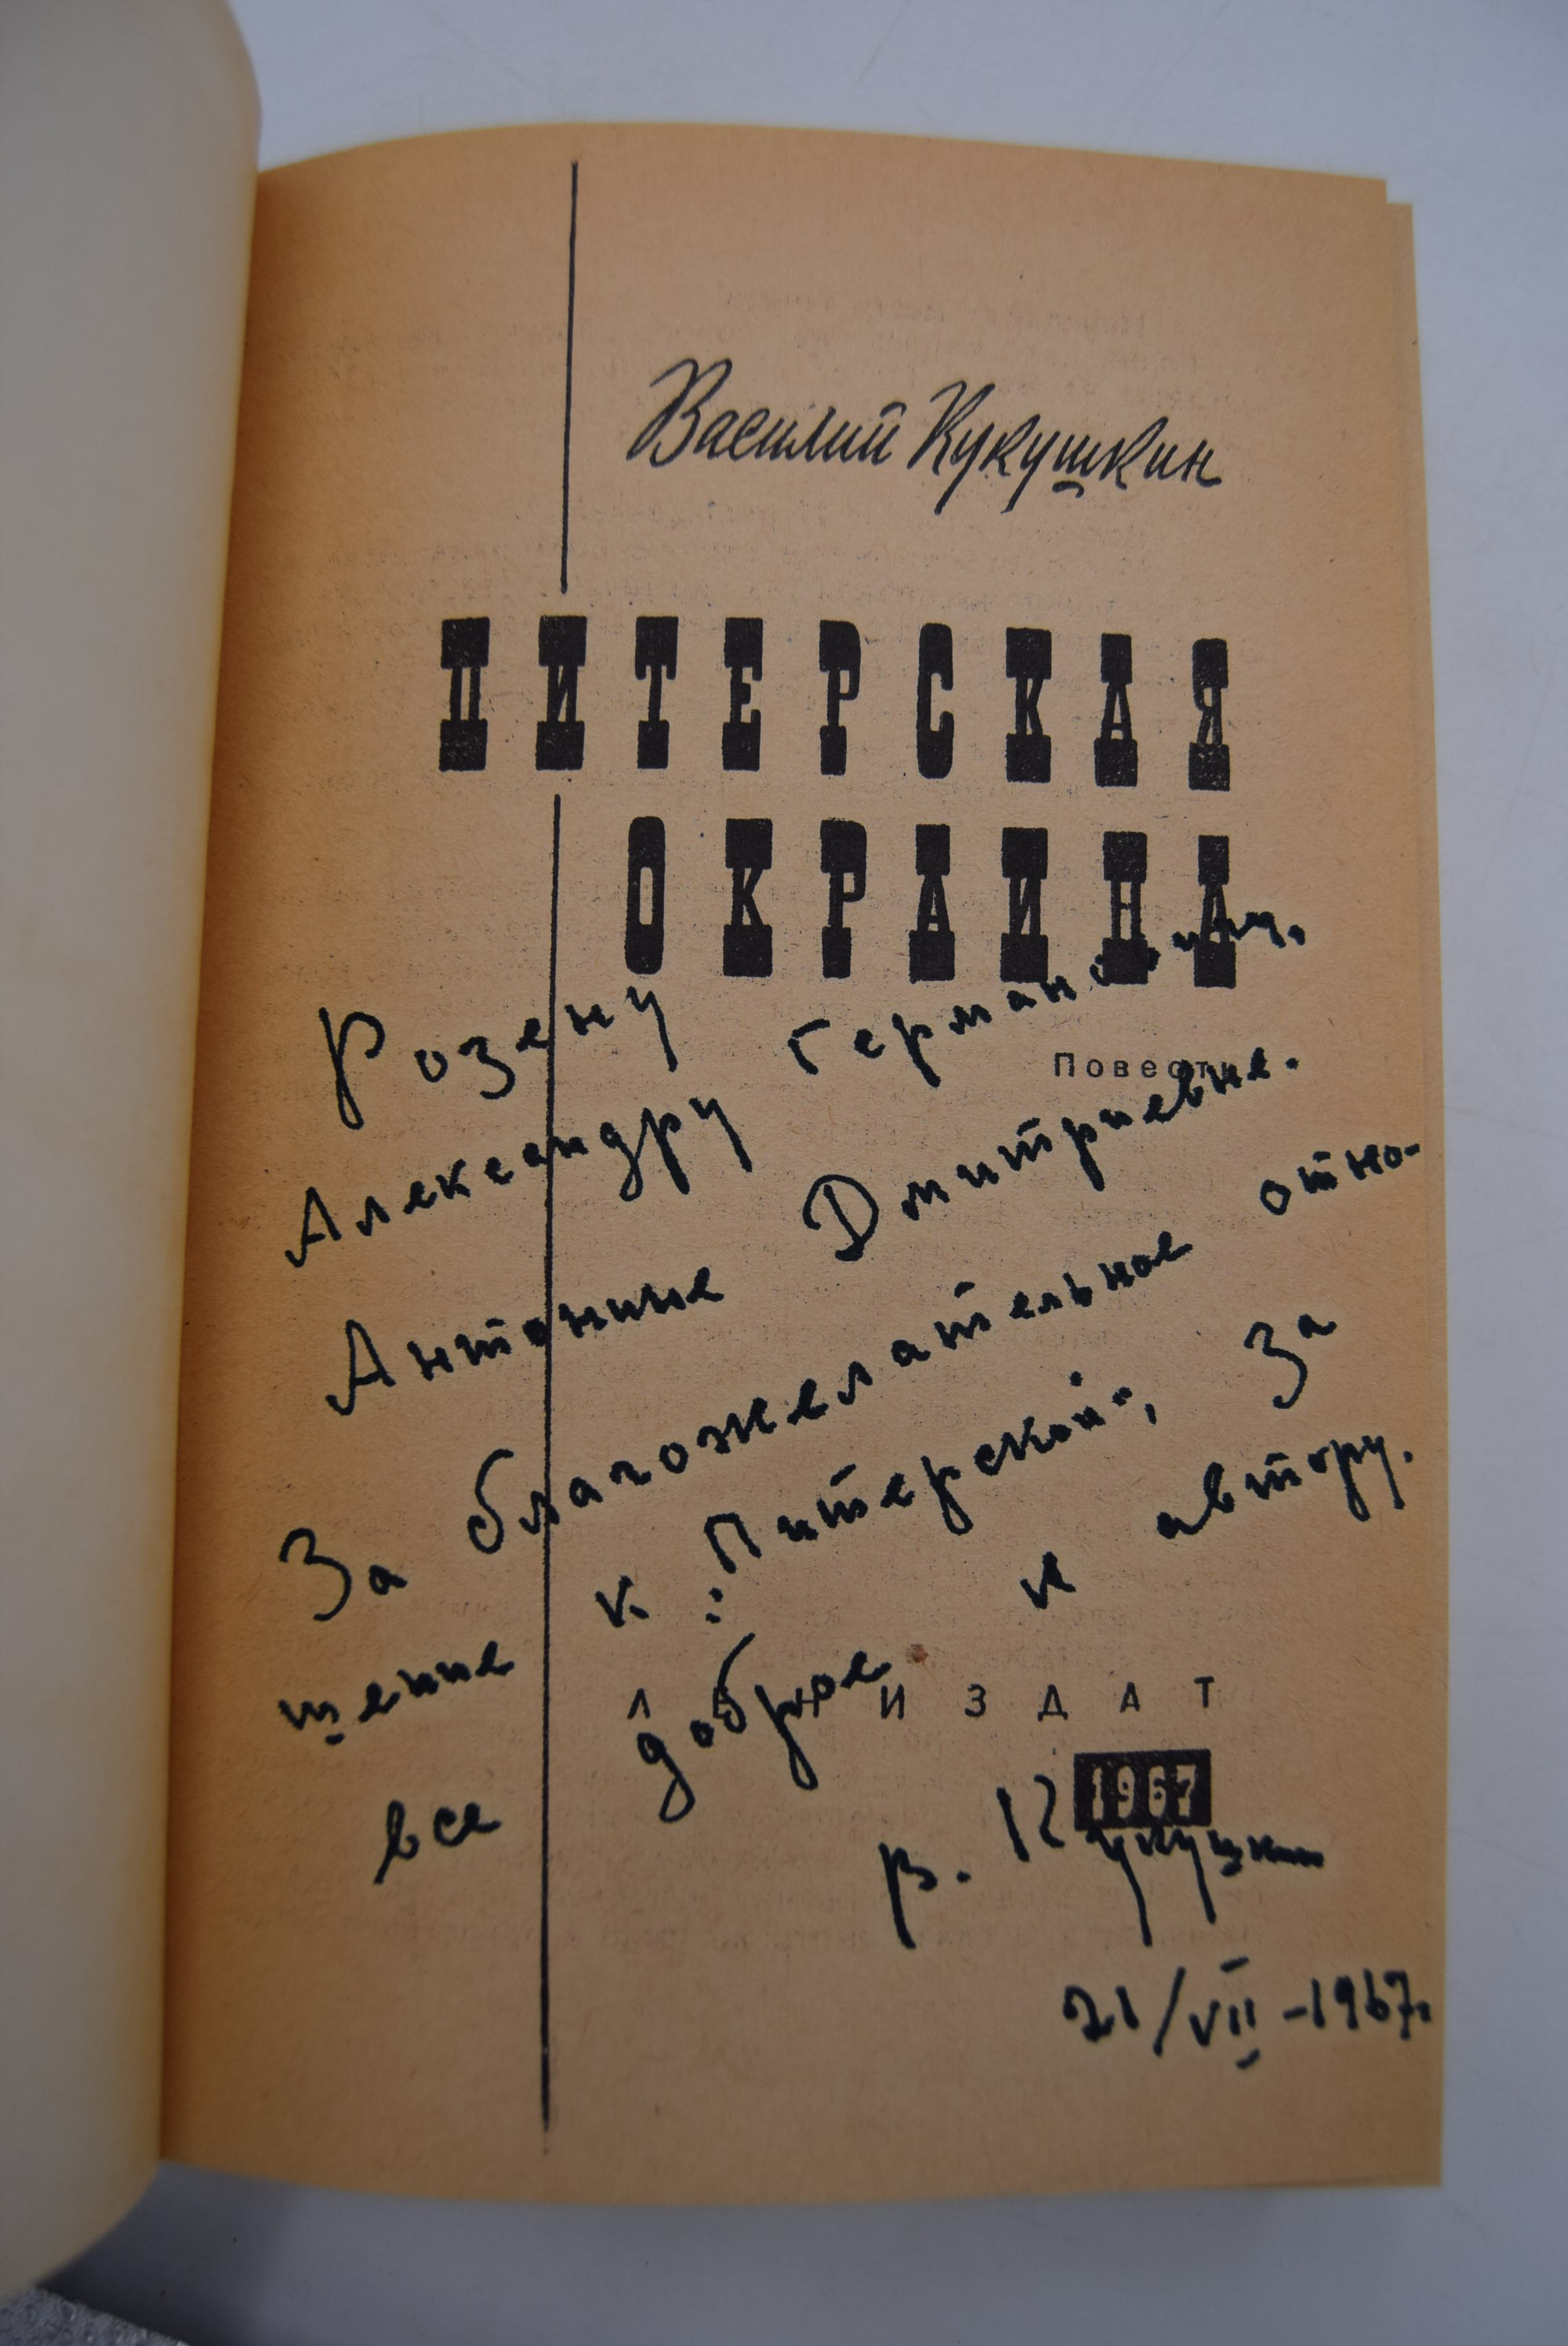 Василий Кукушкин
ПИТЕРСКАЯ
ОКРАИНА
Повесть
Розену
Александру Германовичу,
Антонине Дмитриевне.
За благожелательное отно-
шение к „Питерской", за
все доброе к автору.
В. Кукушкин
21/VII-1967.
ЛЕНИЗДАТ
1967